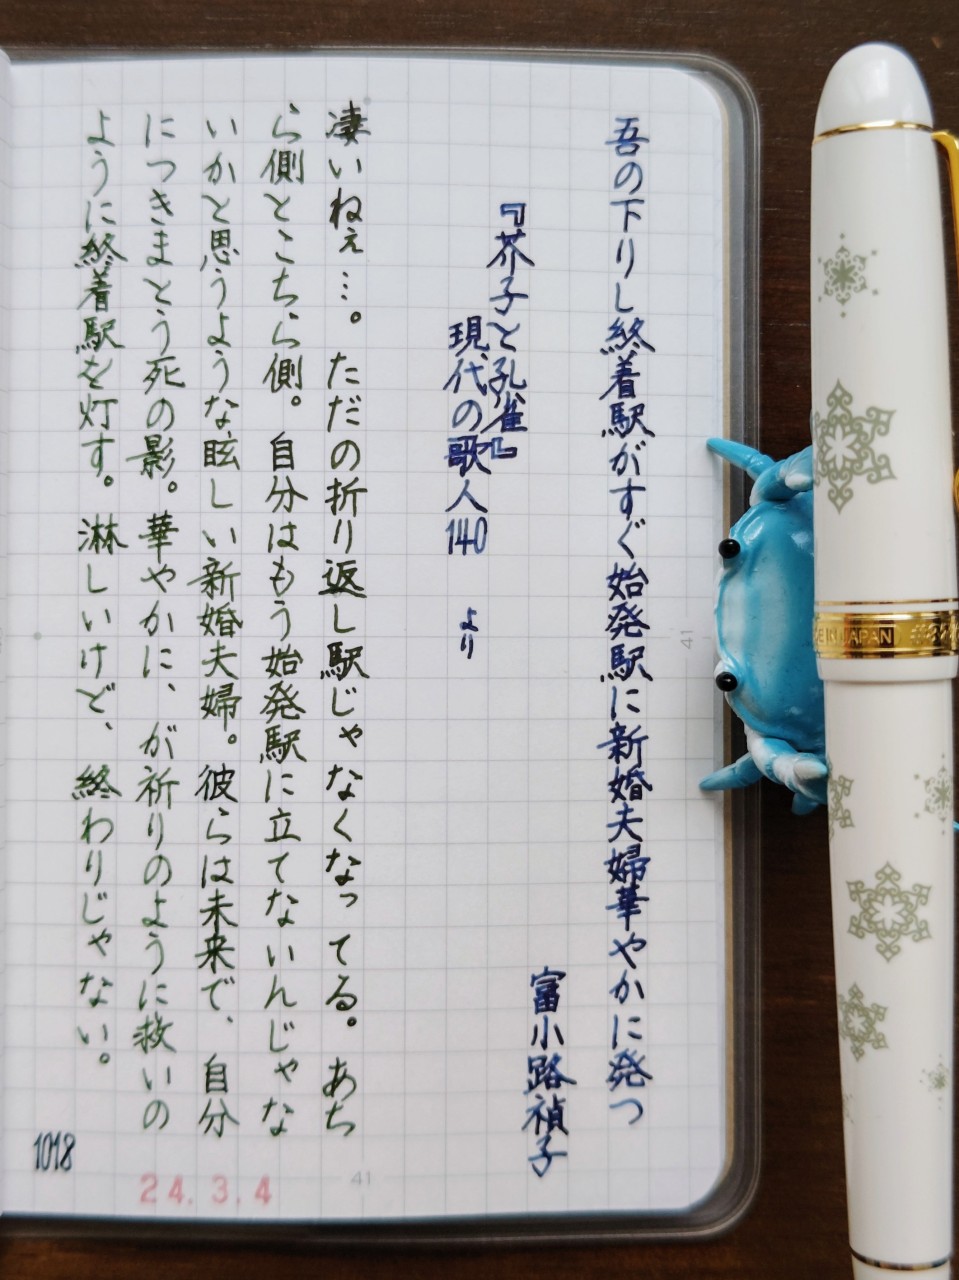 吾の下りし終着駅がすぐ始発駅に新婚夫婦華やかに発つ
富小路禎子
『芥子と孔雀』
現代の歌人140 より
凄いねぇ…。ただの折り返し駅じゃなくなってる。あち
ら側とこちら側。自分はもう始発駅に立てないんじゃな
いかと思うような眩しい新婚夫婦。彼らは未来で、自分
につきまとう死の影。華やかに、が祈りのように救いの
ように終着駅を灯す。淋しいけど、終わりじゃない。
1018
24.3.4
41
41
JAPAN